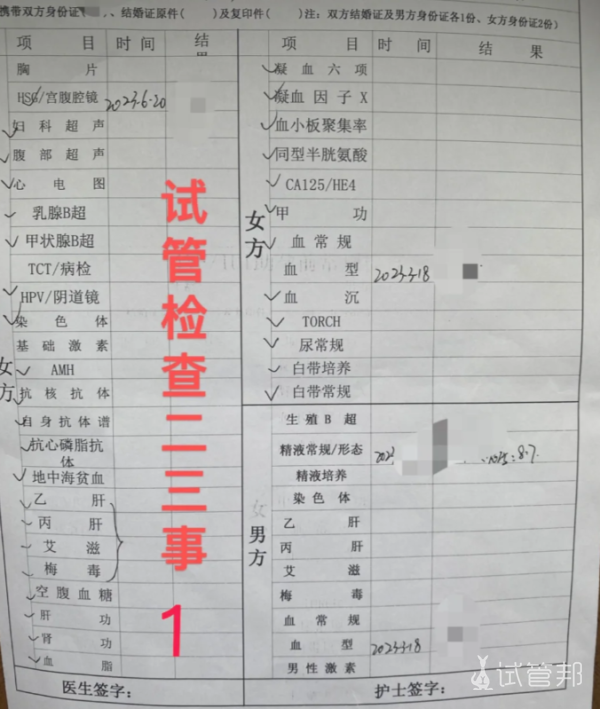 携带双方身份证
、结婚证原件（ ）及复印件（ ）注：双方结婚证及男方身份证各1份、女方身份证2份）
项 目 时间 结果
胸 片
HSG/宫腹腔镜 2023.6.20
妇科超声
腹部超声
心电图
乳腺B超
甲状腺B超
TCT/病检
HPV/阴道镜
染色体
基础激素
女方
AMH
抗核抗体
自身抗体谱
抗心磷脂抗体
地中海贫血
乙 肝
丙 肝
艾 滋
梅 毒
空腹血糖
肝 功
肾 功
血 脂
医生签字：
项 目 时间 结 果
凝血六项
凝血因子X
血小板聚集率
同型半胱氨酸
CA125/HE4
女方
甲 功
血常规
血 型 2023.3.18
血 沉
TORCH
尿常规
白带培养
白带常规
生殖B超
精液常规/形态
精液培养
染色体
男方
乙 肝
丙 肝
艾 滋
梅 毒
血常规
血 型 2023.3.18
男性激素
护士签字：
试管检查二三事
1
试管邦